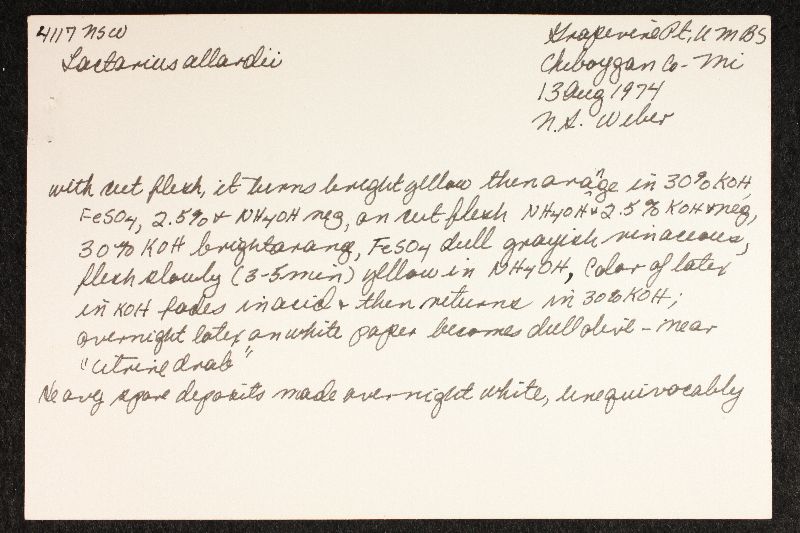 4117 NSW
Lactarius allardii
Grapevine Pt, UMBS
Cheboygan Co - Mi
13 Aug 1974
N.S. Weber
with cut flesh, it turns bright yellow then orange in 30% KOH,
FeSO4, 2.5% & NH4OH neg, on cut flesh NH4OH & 2.5% KOH & neg,
30% KOH bright orang, FeSO4 dull grayish vinaceous,
flesh slowly (3-5 min) yellow in NH4OH, Color of latex
in KOH fades in acid & then returns in 30% KOH;
overnight latex on white paper becomes dull olive - near
"citrine drab"
Heavy spore deposits made overnight white, unequivocably